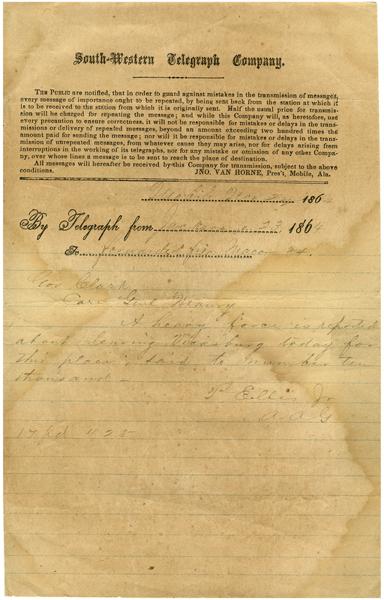 South-Western Telegraph Company.
THE PUBLIC are notified, that in order to guard against mistakes in the transmission of messages,
every message of importance ought to be repeated, by being sent back from the station at which it
is to be received to the station from which it is originally sent. Half the usual price for transmis-
sion will be charged for repeating the message; and while this Company will, as heretofore, use
every precaution to ensure correctness, it will not be responsible for mistakes or delays in the trans-
missions or delivery of repeated messages, beyond an amount exceeding two hundred times the
amount paid for sending the message; nor will it be responsible for mistakes or delays in the trans-
mission of unrepeated messages, from whatever cause they may arise, nor for delays arising from
interruptions in the working of its telegraphs, nor for any mistake or omission of any other Compa-
ny, over whose lines a message is to be sent to reach the place of destination.
All messages will hereafter be received by this Company for transmission, subject to the above
conditions. JNO. VAN HORNE, Pres't, Mobile, Ala.
1864
By Telegraph from 23, 1864
To Macon 24.
Gov Clark
Care Genl Maury
A heavy force is reported
about leaving Vicksburg today for
this place, said to number ten
thousand
Ellis Jr
A A G
17 pd 425